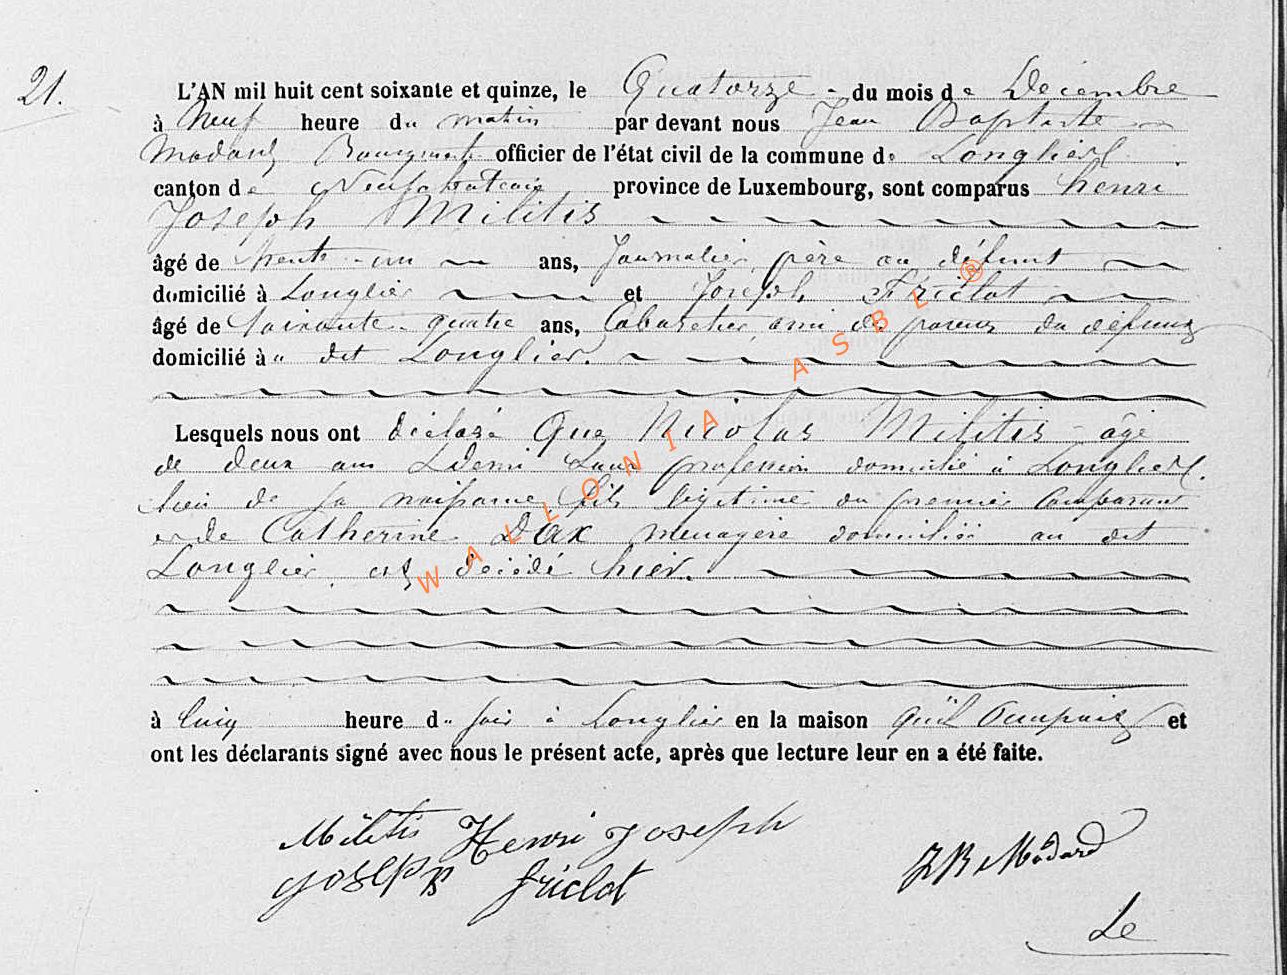 21.
L'AN mil huit cent soixante et quinze, le Quatorze du mois de Décembre
à Neuf heure du matin par devant nous Jean Baptiste
Modard Bourgmestre officier de l'état civil de la commune de Longlier
canton de Neufchateau province de Luxembourg, sont comparus henri
Joseph Militis
âgé de trente-un ans, Journalier, père au défunt
domicilié à Longlier et Joseph Friclot
âgé de Soixante-quatre ans, Cabaretier, ami du défunt
domicilié à u dit Longlier.
Lesquels nous ont déclaré Que Nicolas Militis âgé
de deux ans demi Sans profession domicilié à Longlier
lieu de sa naissance, fils légitime du premier Comparant
et de Catherine Dax menagère domiciliée au dit
Longlier, est décédé hier.
à Cinq heure du soir à Longlier en la maison qu'il Occupait et
ont les déclarants signé avec nous le présent acte, après que lecture leur en a été faite.
Militis Henri Joseph
Joseph friclot
JB Modard
Le
WALLONIA ASBL ®